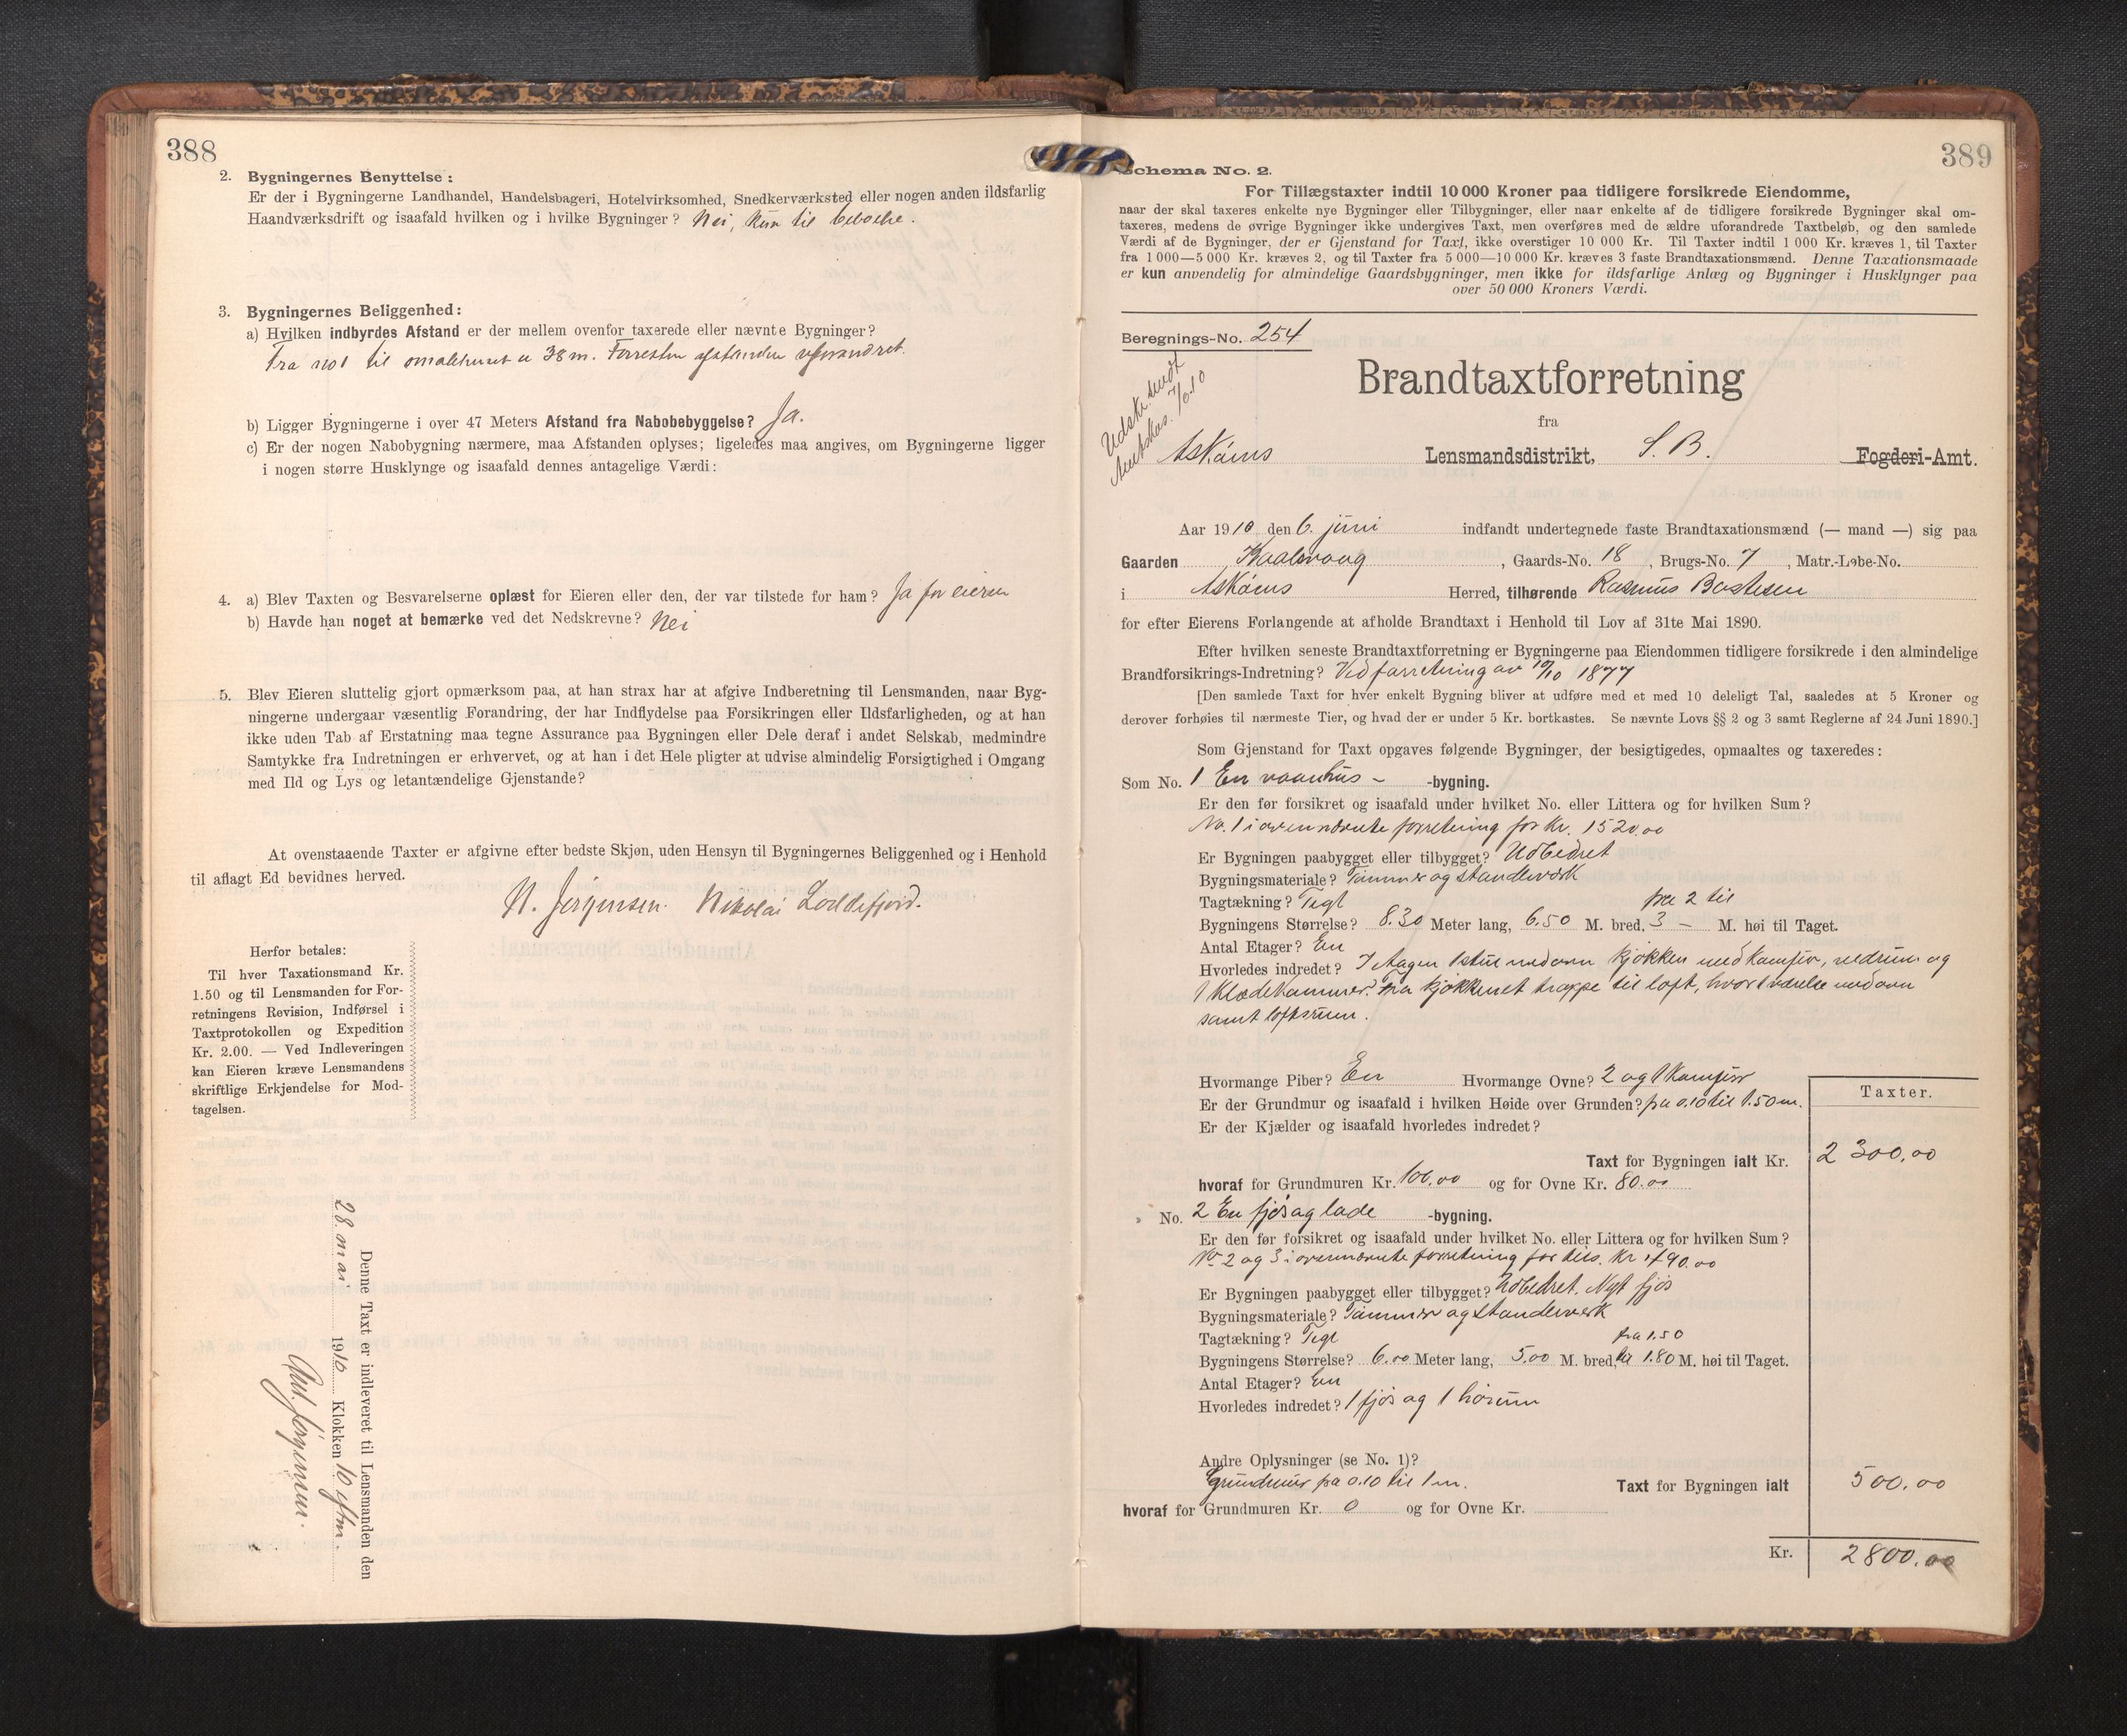 388
2. Bygningernes Benyttelse:
Er der i Bygningerne Landhandel, Handelsbageri, Hotelvirksomhed, Snedkerværksted eller nogen anden ildsfarlig
Haandværksdrift og isaafald hvilken og i hvilke Bygninger? Nei, kun til beboelse.
3. Bygningernes Beliggenhed:
a) Hvilken indbyrdes Afstand er der mellem ovenfor taxerede eller nævnte Bygninger?
Fra no 1 til smalehuset er 38 m. Forresten afstanden uforandret.
b) Ligger Bygningerne i over 47 Meters Afstand fra Nabobebyggelse? Ja.
c) Er der nogen Nabobygning nærmere, maa Afstanden oplyses; ligeledes maa angives, om Bygningerne ligger
i nogen større Husklynge og isaafald dennes antagelige Værdi:
4. a) Blev Taxten og Besvarelserne oplæst for Eieren eller den, der var tilstede for ham? Ja for eieren
b) Havde han noget at bemærke ved det Nedskrevne? Nei
5. Blev Eieren sluttelig gjort opmærksom paa, at han strax har at afgive Indberetning til Lensmanden, naar Byg-
ningerne undergaar væsentlig Forandring, der har Indflydelse paa Forsikringen eller Ildsfarligheden, og at han
ikke uden Tab af Erstatning maa tegne Assurance paa Bygningen eller Dele deraf i andet Selskab, medmindre
Samtykke fra Indretningen er erhvervet, og at han i det Hele pligter at udvise almindelig Forsigtighed i Omgang
med Ild og Lys og letantændelige Gjenstande?
At ovenstaaende Taxter er afgivne efter bedste Skjøn, uden Hensyn til Bygningernes Beliggenhed og i Henhold
til aflagt Ed bevidnes herved.
N. Jørgensen. Nikolai Loddefjord.
Herfor betales:
Til hver Taxationsmand Kr.
1.50 og til Lensmanden for For-
retningens Revision, Indførsel i
Taxtprotokollen og Expedition
Kr. 2.00. — Ved Indleveringen
kan Eieren kræve Lensmandens
skriftlige Erkjendelse for Mod-
tagelsen.
Denne Taxt er indleveret til Lensmanden den
28. mai 1910 Klokken 10 efm.
Jørgensen.
389
Schema No. 2.
For Tillægstaxter indtil 10 000 Kroner paa tidligere forsikrede Eiendomme,
naar der skal taxeres enkelte nye Bygninger eller Tilbygninger, eller naar enkelte af de tidligere forsikrede Bygninger skal om-
taxeres, medens de øvrige Bygninger ikke undergives Taxt, men overføres med de ældre uforandrede Taxtbeløb, og den samlede
Værdi af de Bygninger, der er Gjenstand for Taxt, ikke overstiger 10 000 Kr. Til Taxter indtil 1 000 Kr. kræves 1, til Taxter
fra 1 000—5 000 Kr. kræves 2, og til Taxter fra 5 000—10 000 Kr. kræves 3 faste Brandtaxationsmænd. Denne Taxationsmaade
er kun anvendelig for almindelige Gaardsbygninger, men ikke for ildsfarlige Anlæg og Bygninger i Husklynger paa
over 50 000 Kroners Værdi.
Beregnings-No. 254
Udskr. sendt
Amtskas. 7/6.10
Brandtaxtforretning
fra
Askøens Lensmandsdistrikt, S. B. Fogderi-Amt.
Aar 1910 den 6. juni indfandt undertegnede faste Brandtaxationsmænd (— mand —) sig paa
Gaarden , Gaards-No. 18 , Brugs-No. 7 , Matr.-Løbe-No.
i Askøens Herred, tilhørende Rasmus Bastesen
for efter Eierens Forlangende at afholde Brandtaxt i Henhold til Lov af 31te Mai 1890.
Efter hvilken seneste Brandtaxtforretning er Bygningerne paa Eiendommen tidligere forsikrede i den almindelige
Brandforsikrings-Indretning? Ved forretning av 10/10 1877
[Den samlede Taxt for hver enkelt Bygning bliver at udføre med et med 10 deleligt Tal, saaledes at 5 Kroner og
derover forhøies til nærmeste Tier, og hvad der er under 5 Kr. bortkastes. Se nævnte Lovs §§ 2 og 3 samt Reglerne af 24 Juni 1890.]
Som Gjenstand for Taxt opgaves følgende Bygninger, der besigtigedes, opmaaltes og taxeredes:
Som No. 1 En vaanhus- -bygning.
Er den før forsikret og isaafald under hvilket No. eller Littera og for hvilken Sum?
No. 1 i ovennævnte forretning for Kr. 1520.00
Er Bygningen paabygget eller tilbygget? Udbedret
Bygningsmateriale? Tømmer og standerværk
Tagtækning? Tegl fra 2 til
Bygningens Størrelse? 8.30 Meter lang, 6.50 M. bred, 3 – M. høi til Taget.
Antal Etager? En
Hvorledes indredet? I etagen 1 stue med ovn kjøkken med komfur, vedrum og
1 klædekammer. Fra kjøkkenet trappe til loft, hvor 1 værelse med ovn
samt loftsrum.
Hvormange Piber? En Hvormange Ovne? 2 og 1 komfur
Er der Grundmur og isaafald i hvilken Høide over Grunden? fra 0.10 til 1.50 m.
Er der Kjælder og isaafald hvorledes indredet?
Taxter.
Taxt for Bygningen ialt Kr. 2 300.00
hvoraf for Grundmuren Kr. 100.00 og for Ovne Kr. 80.00
No. 2 En fjøs og lade -bygning.
Er den før forsikret og isaafald under hvilket No. eller Littera og for hvilken Sum?
No 2 og 3 i ovennævnte forretning for tils. Kr
Er Bygningen paabygget eller tilbygget? Udbedret. Nyt fjøs
Bygningsmateriale? Tømmer og standerverk
Tagtækning? Tegl fra 1.50
Bygningens Størrelse? 6.00 Meter lang, 5.00 M. bred, til 1.80 M. høi til Taget.
Antal Etager? En
Hvorledes indredet? 1 fjøs og 1 hørum
Andre Oplysninger (se No. 1)?
Grundmur fra 0.10 til 1 m. Taxt for Bygningen ialt 500.00
hvoraf for Grundmuren Kr. 0 og for Ovne Kr.
Kr. 2800.00